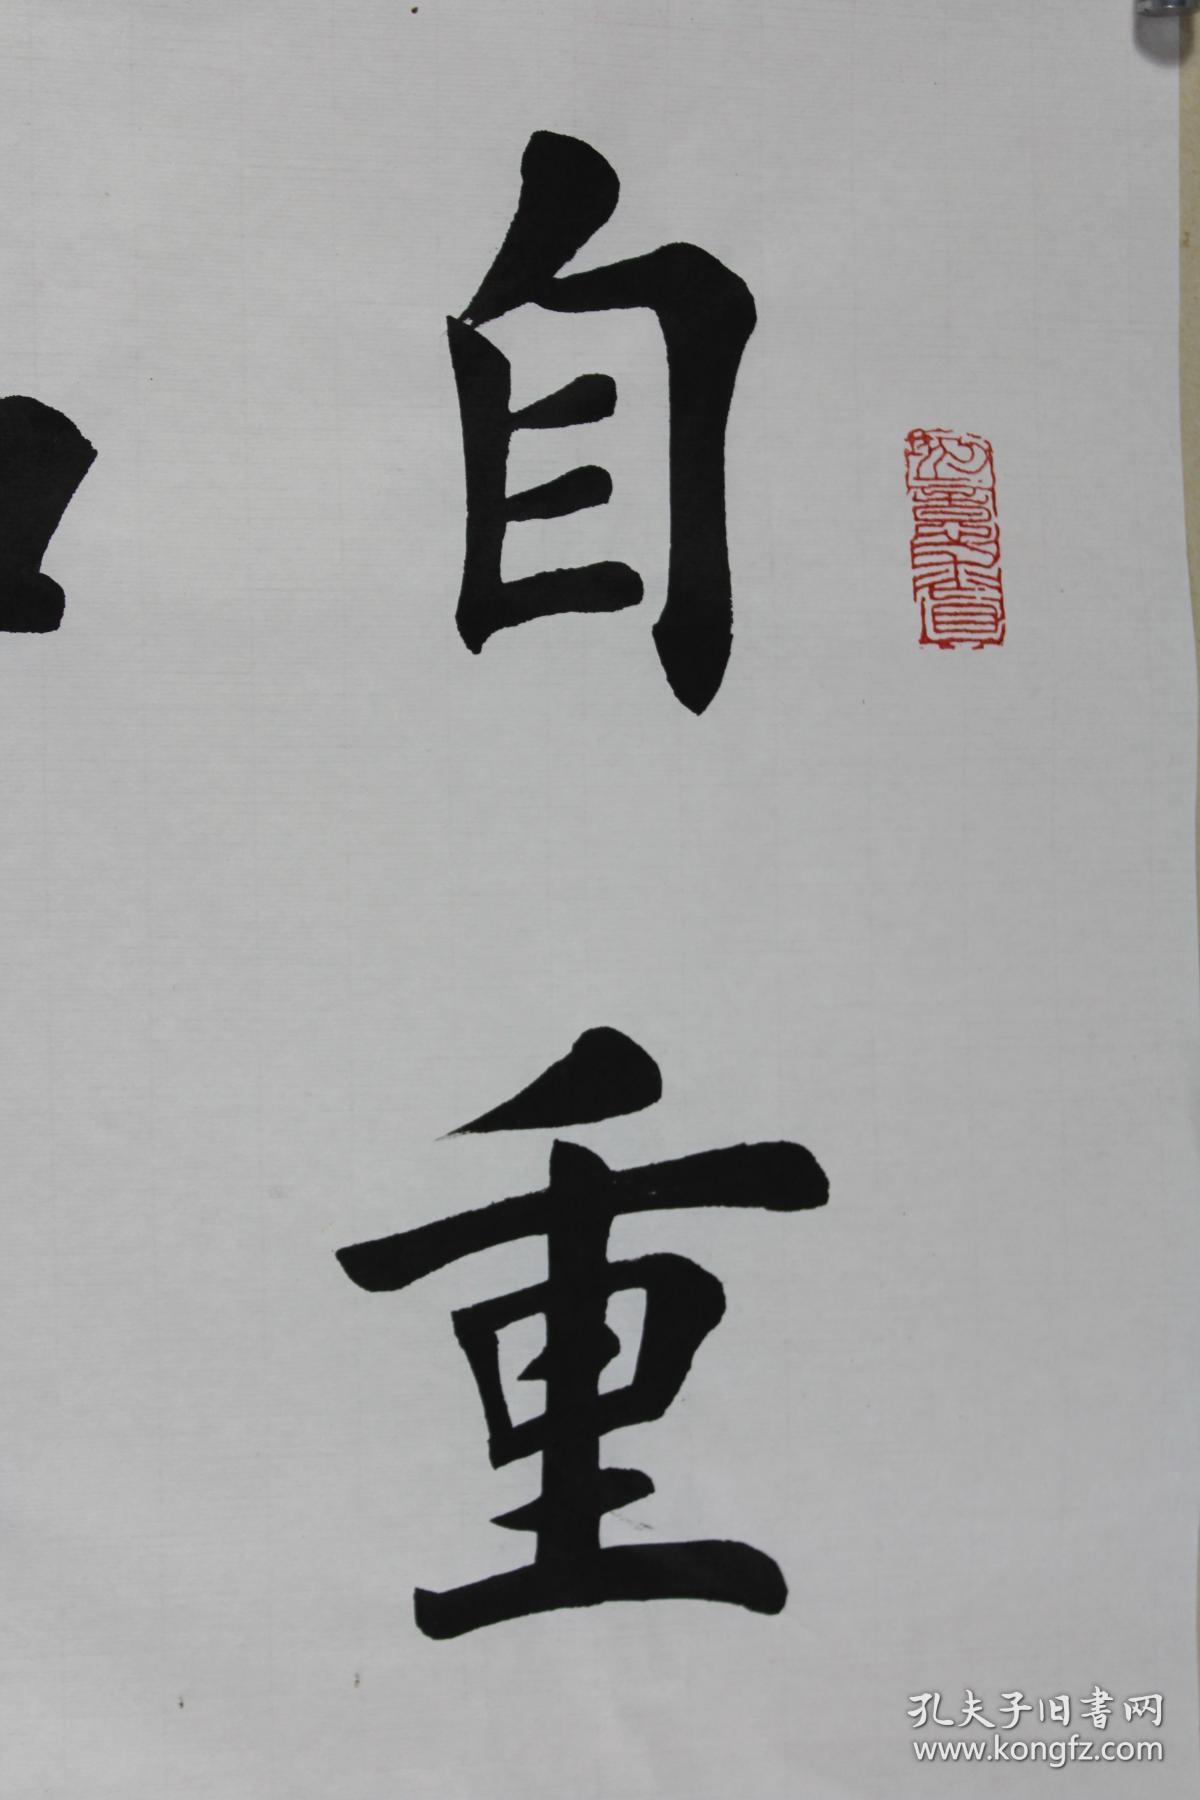 自重
孔夫子旧书网
www.kongfz.com